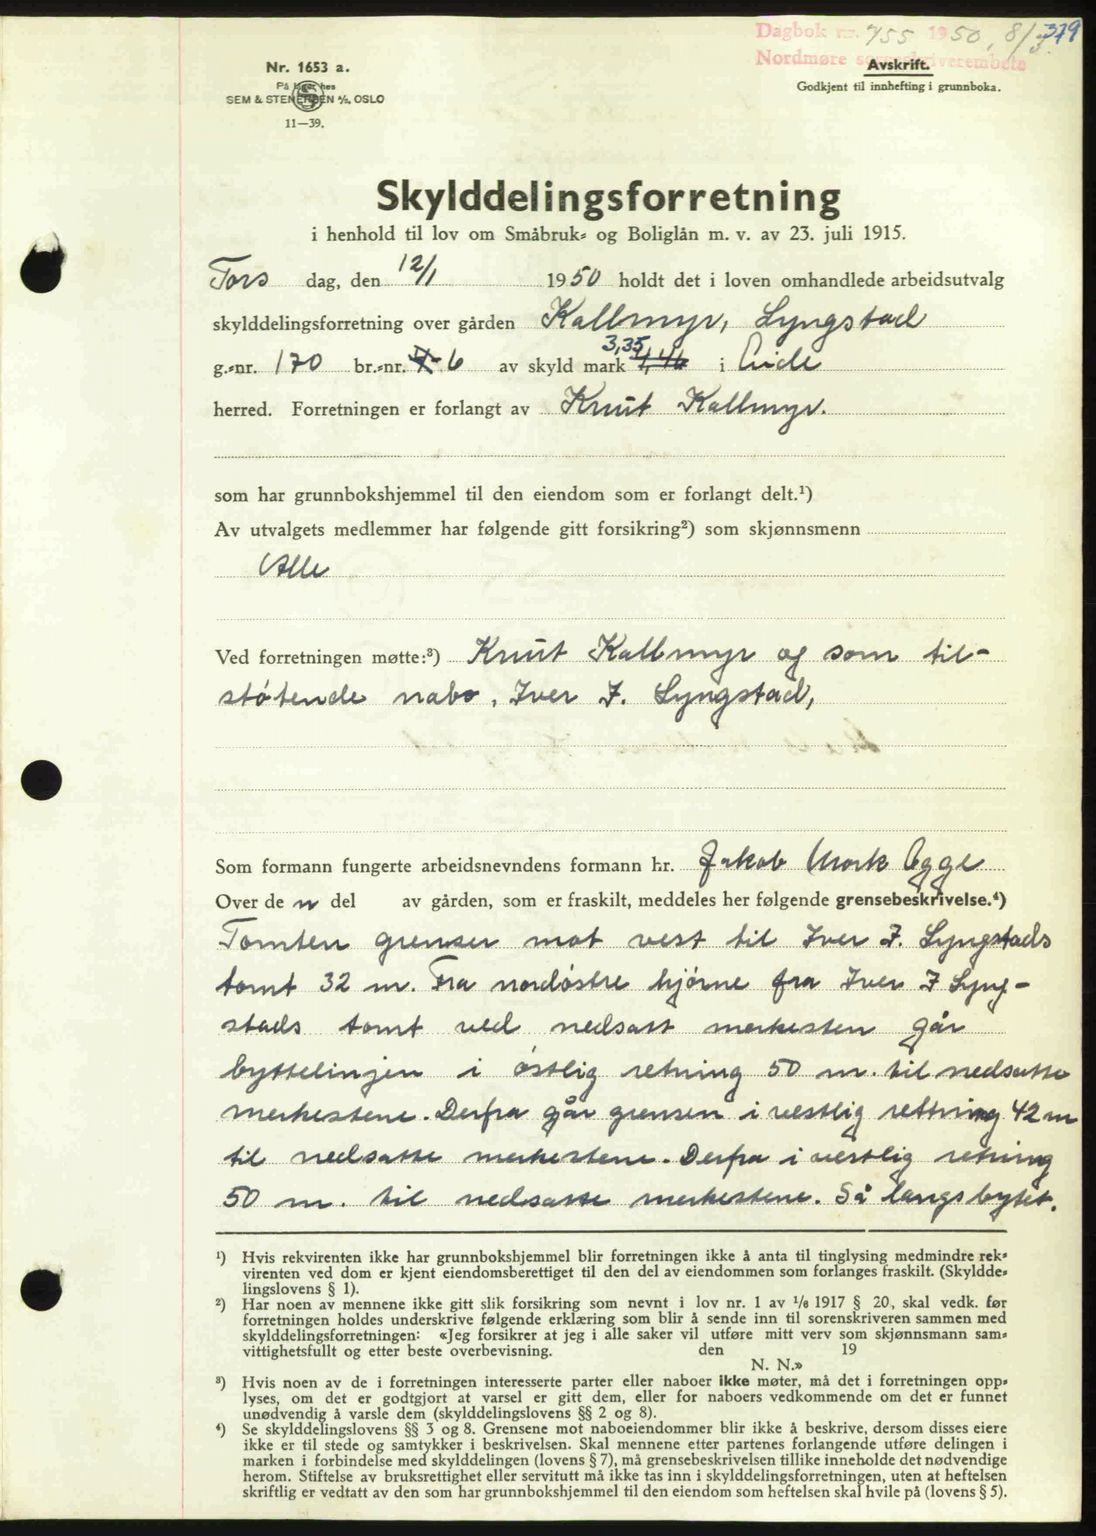 Dagbok nr. 755 1950, 8/3. 379
Nordmøre sorenskriverembete
Nr. 1653 a.
På lager hos
SEM & STENERSEN A/S, OSLO
11—39.
Avskrift.
Godkjent til innhefting i grunnboka.
Skylddelingsforretning
i henhold til lov om Småbruk- og Boliglån m. v. av 23. juli 1915.
Tors dag, den 12/1 1950 holdt det i loven omhandlede arbeidsutvalg
skylddelingsforretning over gården Kallmyr, Lyngstad
g.-nr. 170 br.-nr. 6 av skyld mark 3,35 i Eide
herred. Forretningen er forlangt av Knut Kallmyr.
som har grunnbokshjemmel til den eiendom som er forlangt delt.¹)
Av utvalgets medlemmer har følgende gitt forsikring²) som skjønnsmenn
Alle
Ved forretningen møtte:³) Knut Kallmyr og som til-
støtende nabo, Iver J. Lyngstad,
Som formann fungerte arbeidsnevndens formann hr. Jakob Mork Egge
Over de n del av gården, som er fraskilt, meddeles her følgende grensebeskrivelse.⁴)
Tomten grenser mot vest til Iver J. Lyngstads
tomt 32 m. Fra nordøstre hjørne fra Iver J Lyng-
stads tomt ved nedsatt merkesten går
byttelinjen i østlig retning 50 m. til nedsatte
merkestene. Derfra går grensen i vestlig rettning 42 m
til nedsatte merkestene. Derfra i vestlig retning
50 m. til nedsatte merkestene. Så langs bytet.
¹) Hvis rekvirenten ikke har grunnbokshjemmel blir forretningen ikke å anta til tinglysing medmindre rek-
virenten ved dom er kjent eiendomsberettiget til den del av eiendommen som forlanges fraskilt. (Skyldde-
lingslovens § 1).
²) Har noen av mennene ikke gitt slik forsikring som nevnt i lov nr. 1 av 1/6 1917 § 20, skal vedk. før
forretningen holdes underskrive følgende erklæring som blir å sende inn til sorenskriveren sammen med
skylddelingsforretningen: «Jeg forsikrer at jeg i alle saker vil utføre mitt verv som skjønnsmann sam-
vittighetsfullt og etter beste overbevisning. den 19
N. N.»
³) Hvis noen av de i forretningen interesserte parter eller naboer ikke møter, må det i forretningen opp-
lyses, om det er godtgjort at varsel er gitt dem, eller for naboers vedkommende om det er funnet
unødvendig å varsle dem (skylddelingslovens §§ 2 og 8).
⁴) Se skylddelingslovens §§ 3 og 8. Grensene mot naboeiendommer blir ikke å beskrive, dersom disses eiere
ikke er til stede og samtykker i beskrivelsen. Skal mennene etter partenes forlangende utføre delingen i
marken i forbindelse med skylddelingen (lovens § 7), må grensebeskrivelsen tillike inneholde det nødvendige
herom. Stiftelse av bruksrettighet eller servitutt må ikke tas inn i skylddelingsforretningen, uten at heftelsen
skriftlig er vedtatt av den som har grunnbokshjemmel til den eiendom som heftelsen skal hvile på (lovens § 5).